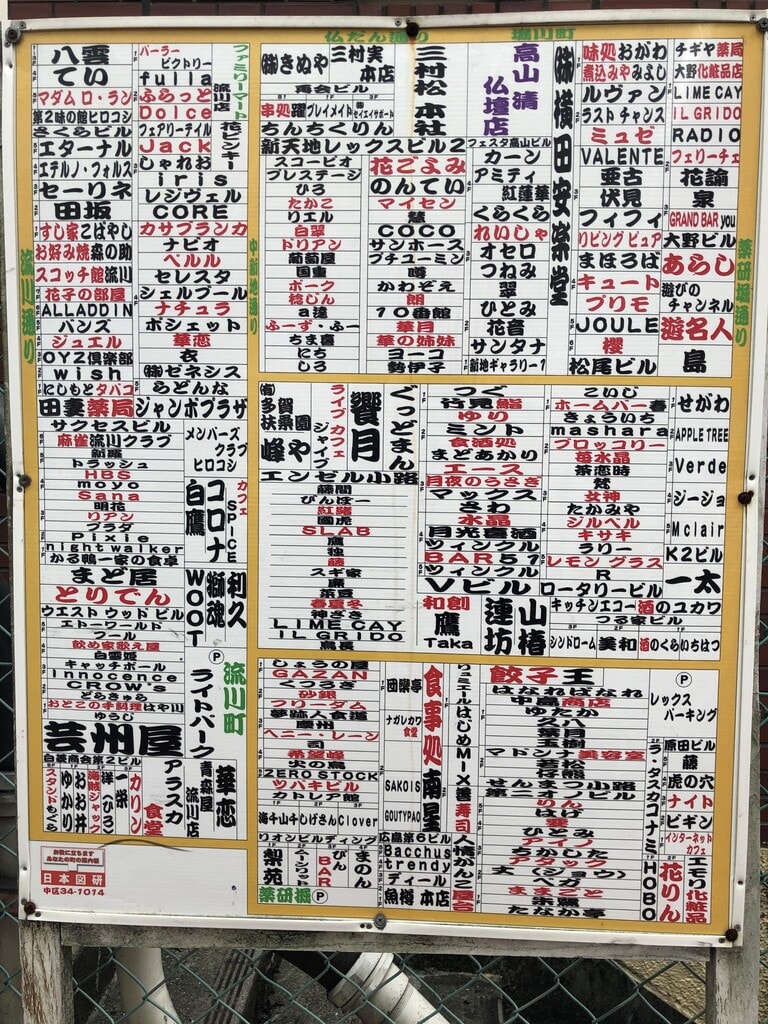 仏だん通り
堀川町
流川通り
中新地通り
薬研堀通り
八雲
てい
マダム ロ・ラン
第2味の館ヒロシ
さくらビル
エターナル
エテルノ・フォルス
セーリネ
田坂
すし家こばやし
お好み焼森の助
スコッチ館流川
花子の部屋
ALLADDIN
バンズ
ジュエル
OYZ倶楽部
wish
にしもとタバコ
田妻薬局
パーラー
ビクトリー
fulla
ふらっと
Dolce
フェアリーテイル
Jack
しゃれお
iris
レジヴェル
CORE
カサブランカ
ナビオ
ベルル
セレスタ
シェルブール
ナチュラ
ポシェット
華恋
衣
㈱ゼネシス
らどんな
ジャンボプラザ
ファミリーマート
流川店
花ピンキー
サクセスビル
麻雀流川クラブ
トラッシュ
HBS
moyo
Sana
明花
リアン
プラダ
Pixie
nightwalker
かる鴨一家の食卓
まど居
とりでん
ウエスト ウッド ビル
エトーワールド
フール
飲め家歌え屋
白雪姫
キャッチボール
Innocence
CROW's
どらきゅら
おとこの手料理はや川
ゆうじ
芸州屋
メンバーズ
クラブ
ヒロコシ
白鷹
コロナ
カフェ
SPICE
WOOT
獅魂
利久
Ⓟ
ライトパーク
流川町
白菱商会第2ビル
スタンドもぐら
ゆかり
おお井
海賊ジャック
洋(ひろ)
一栄
カリン
アラスカ
食堂
青森屋
流川店
華恋
お役に立ちます
あなたの町の案内板
日本図研
中区34-1014
㈱きぬや
三村実
本店
再会ビル
串処躍
プレイメイト
㈱セイエイサポート
ちんちくりん
新天地レックスビル2
三村松 本社
高山清
仏壇店
フェスタ高山ビル
スコーピオ
プレステージ
ひろ
たかこ
リエル
白翠
ドリアン
葡萄屋
国重
ポーク
稔じん
a達
ふーず・ふー
ちま喜
にち
しろ
花ごよみ
のんてい
マイセン
慧
COCO
サンホース
プチユーミン
噂
かわぞえ
朗
10番館
華月
華の姉妹
ヨーコ
勢伊子
カーン
アミティ
紅蓮華
くらくら
れいしゃ
オセロ
つねみ
翠
ひとみ
花音
サンタナ
新地ギャラリー1
㈱横田安楽堂
味処おがわ
煮込みやみよし
ルヴァン
ラスト チャンス
ミュゼ
VALENTE
亜古
伏見
フィフィ
リビング ピュア
まほろば
キュート
プリモ
JOULE
櫻
松尾ビル
チギヤ薬局
大野化粧品店
LIME CAY
IL GRIDO
RADIO
フェリーチェ
花諭
泉
GRAND BAR you
大野ビル
あらし
遊びの
チャンネル
遊名人
島
㈲多賀
扶桑園
峰や
ライブ カフェ
ジャイブ
饗月
ぐっどまん
エンゼル小路
藤間
びんぼー
紅緒
國虎
SLAB
鷹
独
藤
スギ家
麻
茶豆
春夏冬
神ざき
LIME CAY
IL GRIDO
鳥長
つぐ
行見鮨
ゆり
ミント
食酒処
まどあかり
エース
月夜のうさぎ
マックス
さわ
水晶
月光喜酒
ツィンクル
BAR57
ツィンクル
Vビル
こいじ
ホームバー春
きょういち
mashara
ブロッコリー
苺水晶
茶恋時
梵
女神
たかみや
ジルベル
キサキ
ラリー
レモン グラス
R
ロータリービル
せがわ
APPLE TREE
Verde
ジージョ
Mclair
K2ビル
一太
和創
鷹
Taka
蓮坊
山椿
キッチンエコー
酒のユカワ
つる家ビル
シンドローム
美和
酒のくらいちはつ
しょうの屋
GAZAN
くつろぎ
砂銀
フリーダム
夢跡人食道
慶州
ヘニー・レーン
司
希望峰
火の鳥
ZERO STOCK
ツバキビル
カトレア館
海千山千しげさん
Clover
リオンビルディング
梨苑
BAR
びん
まのん
薬研堀
Ⓟ
団欒亭
ナガレカワ
食堂
SAKOIS
GOUTYPAO
広島第6ビル
Bacchus
trendy
ディール
魚樽 本店
食事処
南星
リュミエール
はじめ
MIX
善寿司
人情がんこ屋台
餃子王
はなればなれ
中島商店
ゆたか
久八
葉月
玉樹
マドンナ美容室
若松
仔熊
せんまつ小路
第二オノビル
りん
はげ
翠
ひとみ
アイノ
おかした
アタック
玄(ジョウ)
ベガ
ままごと
朱鷺
たなか亭
Ⓟ
レックス
パーキング
原田ビル
藤
虎の穴
ナイト
ビギン
インターネット
カフェ
ラ・タスカ
コナミ
HOBO
花りん
エモリ
化粧品